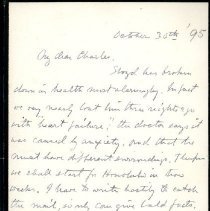 October 30th '95
My dear Charles,
Lloyd has broken
down in health most alarmingly. In fact
we very nearly lost him three nights ago
with "heart failure;" the doctor says it
was caused by anxiety, and that he
must have different surroundings. I hope
we shall start for Honolulu in two
weeks. I have to write hastily to catch
the mail, so only can give bald facts,